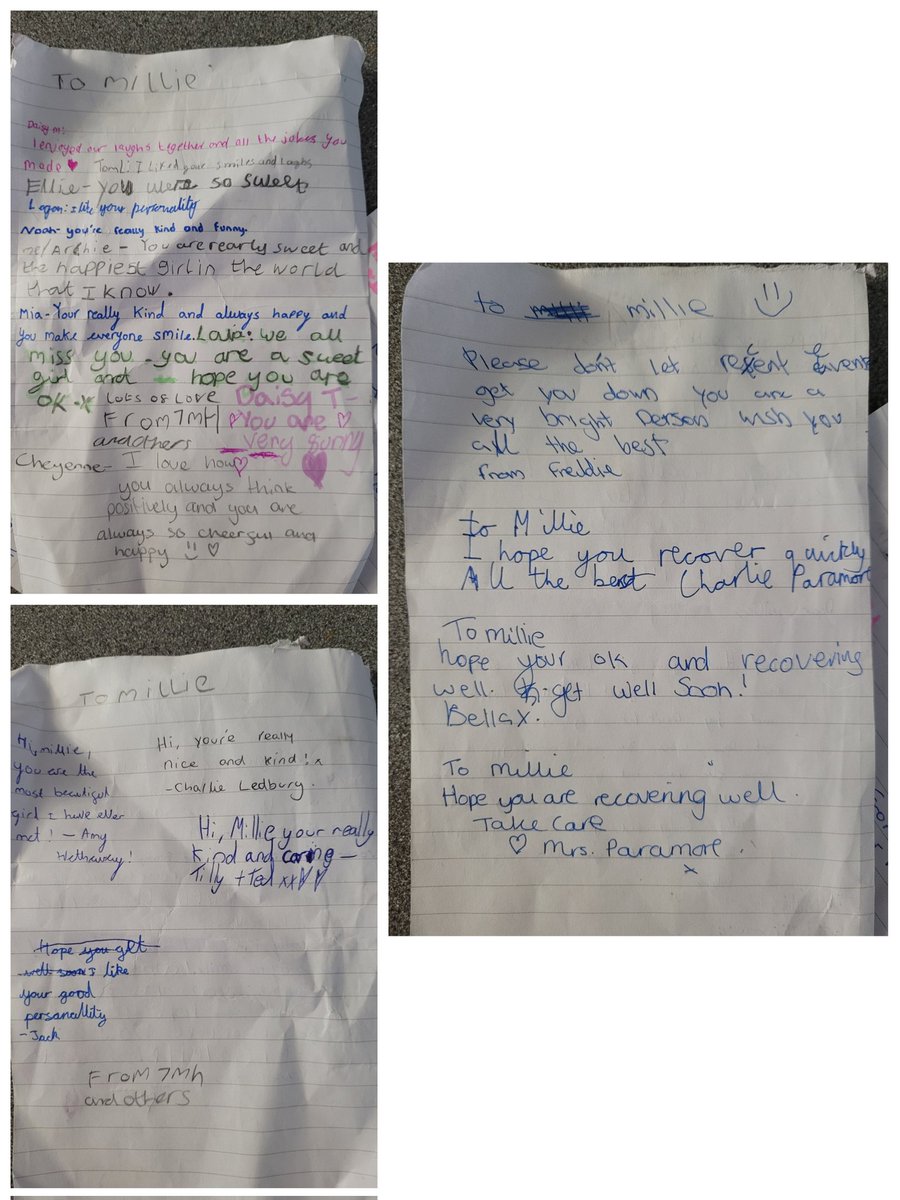 To millie
Daisy M:
I enjoyed our laughs together and all the jokes you
made ♥ Tom L: I liked your smiles and laughs
Ellie - you were so sweet
Logan: I like your personality
Noah- you're really kind and funny.
Archie - You are rearly sweet and
the happiest girl in the world
that I know.
Mia - Your really kind and always happy and
you make everyone smile. Lola: we all
miss you - you are a sweet
girl and hope you are
ok -x
Lots of Love
From 7MH
and others
Daisy T -
♡ You are ♡
very funny
Cheyenne - I love how
you always think
positively and you are
always so cheerful and
happy :) ♡
To Millie
Hi, millie,
you are the
most beautiful
girl I have ever
met! - Amy
Hathaway!
Hi, you're really
nice and kind! x
-Charlie Ledbury.
Hi, Millie your really
kind and caring -
Tilly + Ted xx ♡♡
Hope you get
well soon I like
your good
personallity
-Jack
From 7Mh
and others
to millie :)
Please don't let recent events
get you down you are a
very bright person wish you
all the best
from Freddie
to Millie
I hope you recover quickly
All the best Charlie Paramore
To millie
hope your ok and recovering
well. get well Soon!
Bella x.
To millie
Hope you are recovering well.
Take care
♡ Mrs. Paramore.
x